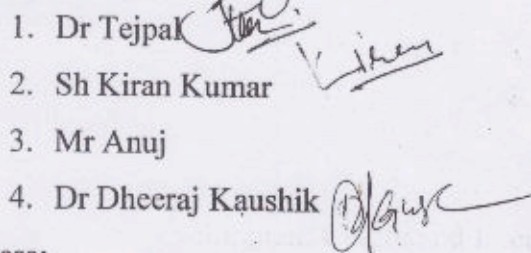 1. Dr Tejpal
2. Sh Kiran Kumar
Kiran
3. Mr Anuj
4. Dr Dheeraj Kaushik